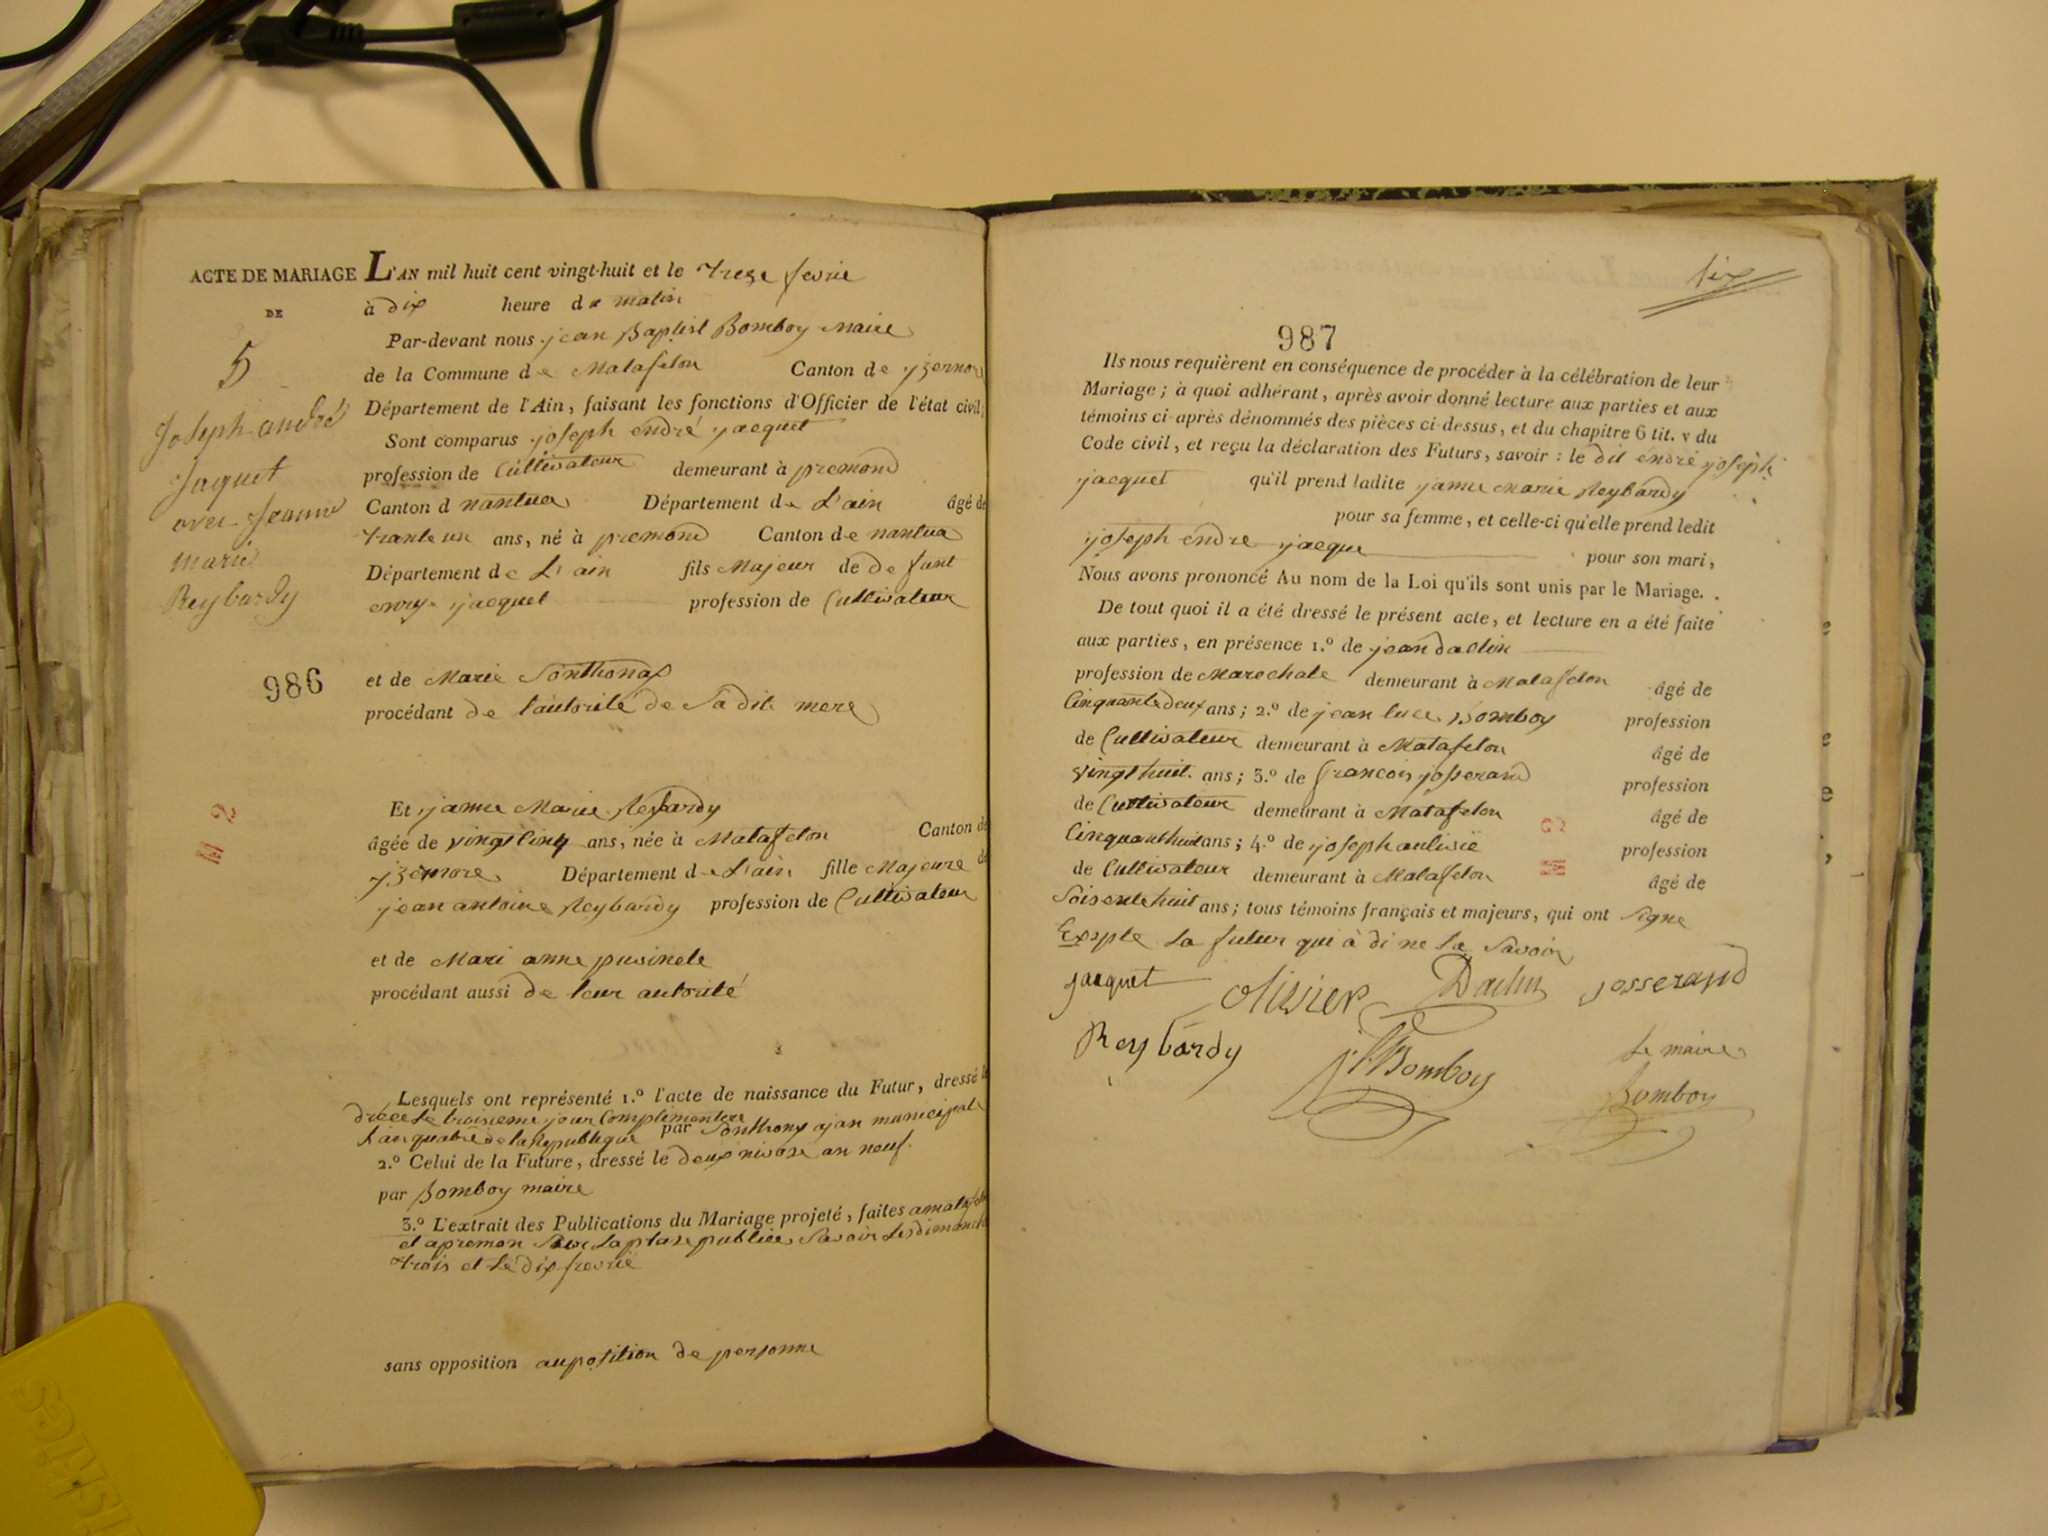 ACTE DE MARIAGE
DE
5
Joseph andré
Jaquet
avec Jeanne
marie
Reybardy
986
L'AN mil huit cent vingt-huit et le treze fevrie
à dix heure du matin
Par-devant nous jean Baptist Bomboy maire
de la Commune de Matafelon Canton de yzernor
Département de l'Ain, faisant les fonctions d'Officier de l'état civil,
Sont comparus joseph endré jacquet
profession de Cultivateur demeurant à premond
Canton d nantua Département de L'ain âgé de
trante un ans, né à premond Canton de nantua
Département de L'ain fils Majeur de defunt
enry jacquet profession de Cultivateur
et de Marie Sonthonax
procédant de l'autorité de Sa dite mere
Et janne Marie Reybardy
âgée de vingt Cinq ans, née à Matafelon Canton de
yzernore Département de L'ain fille Majeure de
jean antoine Reybardy profession de Cultivateur
et de Mari anne pusinele
procédant aussi de leur autorité
Lesquels ont représenté 1.º l'acte de naissance du Futur, dressé le
drécé Le troisieme jour Complimentere
L'an quatre de la Republique par Sonthonx ajan municipale
2.º Celui de la Future, dressé le deux nivose an neuf
par Bomboy maire
3.º L'extrait des Publications du Mariage projeté, faites a matafelon
et apremon Sur La plase publice Savoir Les dimanche
trois et Le dix fevrie
sans opposition auposition de personne
dix
987
Ils nous requièrent en conséquence de procéder à la célébration de leur
Mariage; à quoi adhérant, après avoir donné lecture aux parties et aux
témoins ci-après dénommés des pièces ci-dessus, et du chapitre 6 tit. v du
Code civil, et reçu la déclaration des Futurs, savoir : le dit endré joseph
jacquet qu'il prend ladite janne Marie Reybardy
pour sa femme, et celle-ci qu'elle prend ledit
joseph endre jacque pour son mari,
Nous avons prononcé Au nom de la Loi qu'ils sont unis par le Mariage.
De tout quoi il a été dressé le présent acte, et lecture en a été faite
aux parties, en présence 1.º de jean daclin
profession de Marechale demeurant à Matafelon âgé de
Cinquante deux ans; 2.º de jean luce Bomboy profession
de Cultivateur demeurant à Matafelon âgé de
vingt huit ans; 3.º de francois josserand profession
de Cultivateur demeurant à Matafelon âgé de
Cinquant huit ans; 4.º de joseph aulivié profession
de Cultivateur demeurant à Matafelon âgé de
Soisente huit ans; tous témoins français et majeurs, qui ont Signe
Exsple La futur qui à di ne Le Savoir
jacquet Olivier Daclin josserand
Reybardy Bomboy Le maire
Bomboy